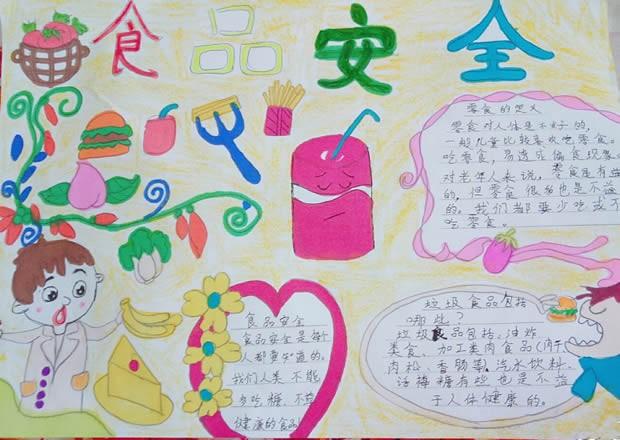 食品安全
零食的定义
零食对人体是不好的,
一般儿童比较喜欢吃零食。
吃零食,易造成偏食现象
对老年人来说,零食是有益
的,但零食很多也是不益
的。我们都要少吃或不
吃零食。
垃圾食品包括
哪些?
垃圾食品包括,油炸
类食、加工类肉食品(肉干
肉松、香肠等)汽水饮料
话梅糖有些也是不益
于人体健康的。
食品安全
食品安全是每个
人都要知道的。
我们人类不能
多吃糖、不益
健康的食品